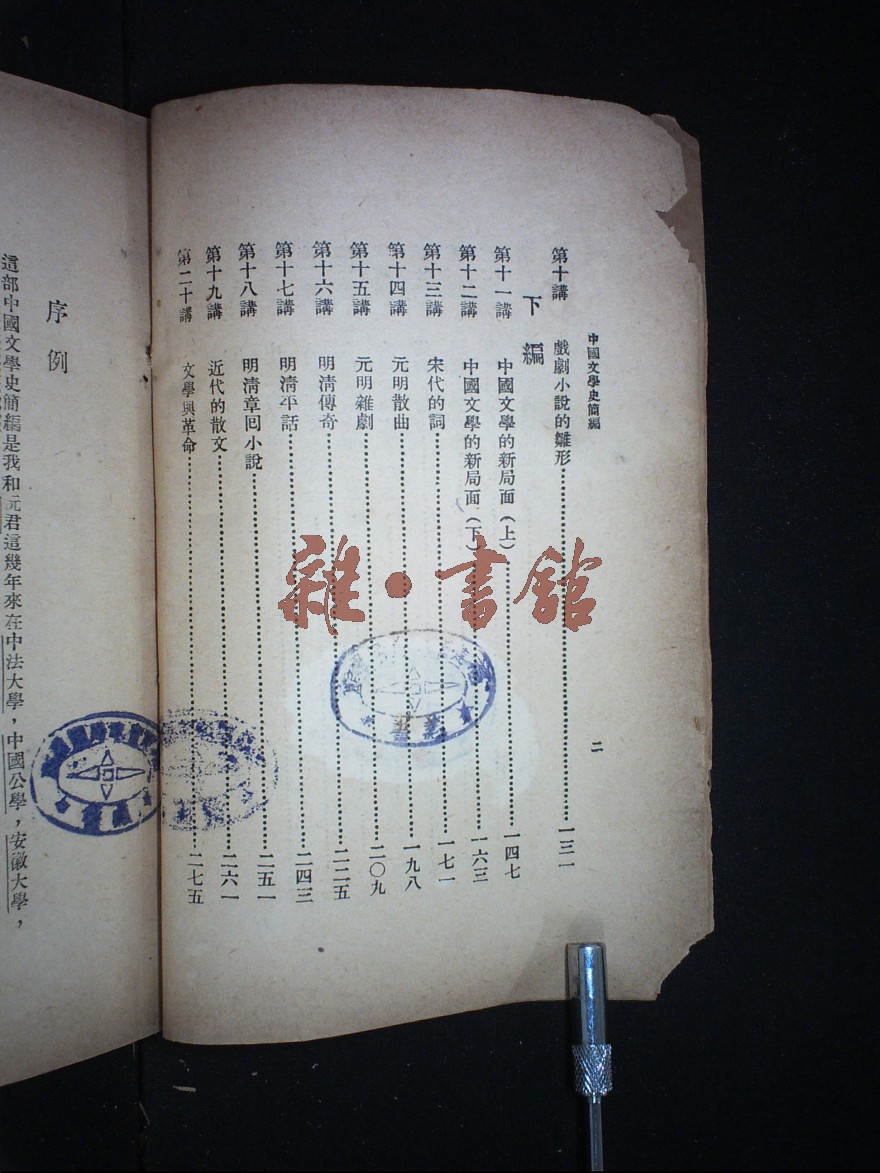 中國文學史簡編
二
第十講 戲劇小說的雛形 一三一
下編
第十一講 中國文學的新局面(上) 一四七
第十二講 中國文學的新局面(下) 一六三
第十三講 宋代的詞 一七一
第十四講 元明散曲 一九八
第十五講 元明雜劇 二〇九
第十六講 明清傳奇 二二五
第十七講 明清平話 二四三
第十八講 明清章回小說 二五一
第十九講 近代的散文 二六一
第二十講 文學與革命 二七五
序例
這部中國文學史簡編是我和沅君這幾年來在中法大學,中國公學,安徽大學,
雜·書館